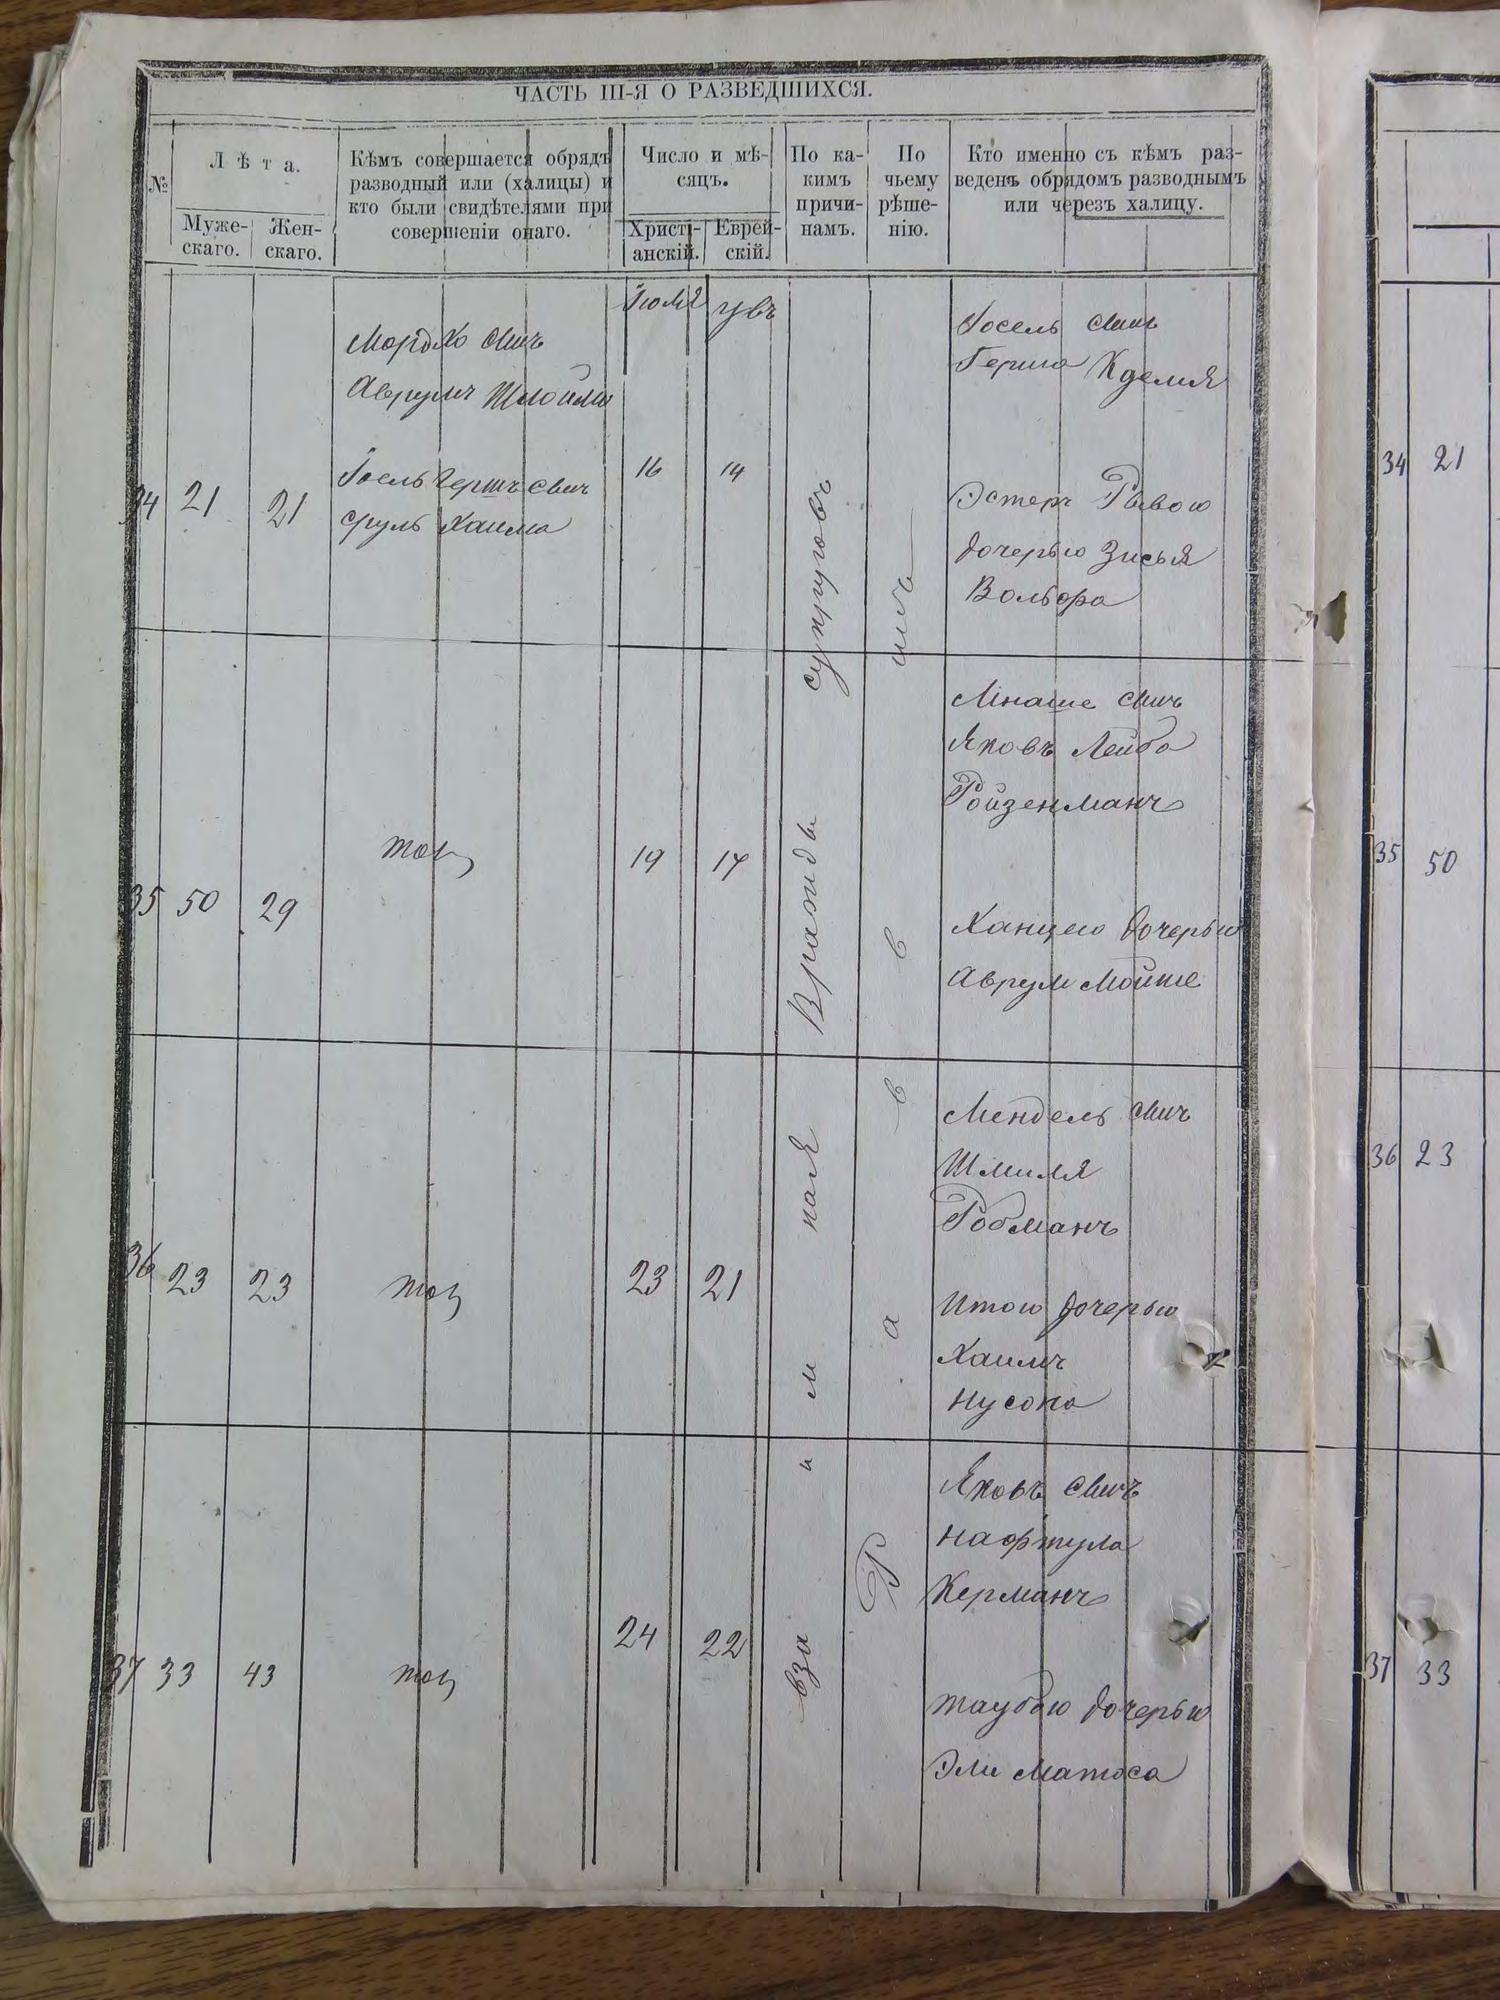 ЧАСТЬ III-Я О РАЗВЕДШИХСЯ.
№
Лѣта.
Муже-
скаго.
Жен-
скаго.
Кѣмъ совершается обрядъ
разводный или (халицы) и
кто были свидѣтелями при
совершеніи онаго.
Число и мѣ-
сяцъ.
Христі-
анскій.
Еврей-
скій.
По ка-
кимъ
причи-
намъ.
По
чьему
рѣше-
нію.
Кто именно съ кѣмъ раз-
веденъ обрядомъ разводнымъ
или черезъ халицу.
34
21
21
Мордко
Аврумъ Шлойма
Іосль Гершъ
Сруль Хаима
Іюля
16
14
Іосель
Герша
Эстеръ Рывою
дочерью Зисья
Вольфа
35
50
29
тощ
19
17
Мнаше
Яковъ Лейба
Ройзенманъ
Ханцею дочерью
Аврум Мойше
36
23
23
тощ
23
21
Мендель
Шмиля
Ройманъ
Итою дочерью
Хаимъ
Нусона
37
33
43
тощ
24
22
Яковъ
Нафтула
Керманъ
Таубою дочерью
Эли Матоса
взаимная вражды супруговъ
Раввинъ
34
21
35
50
36
23
37
33